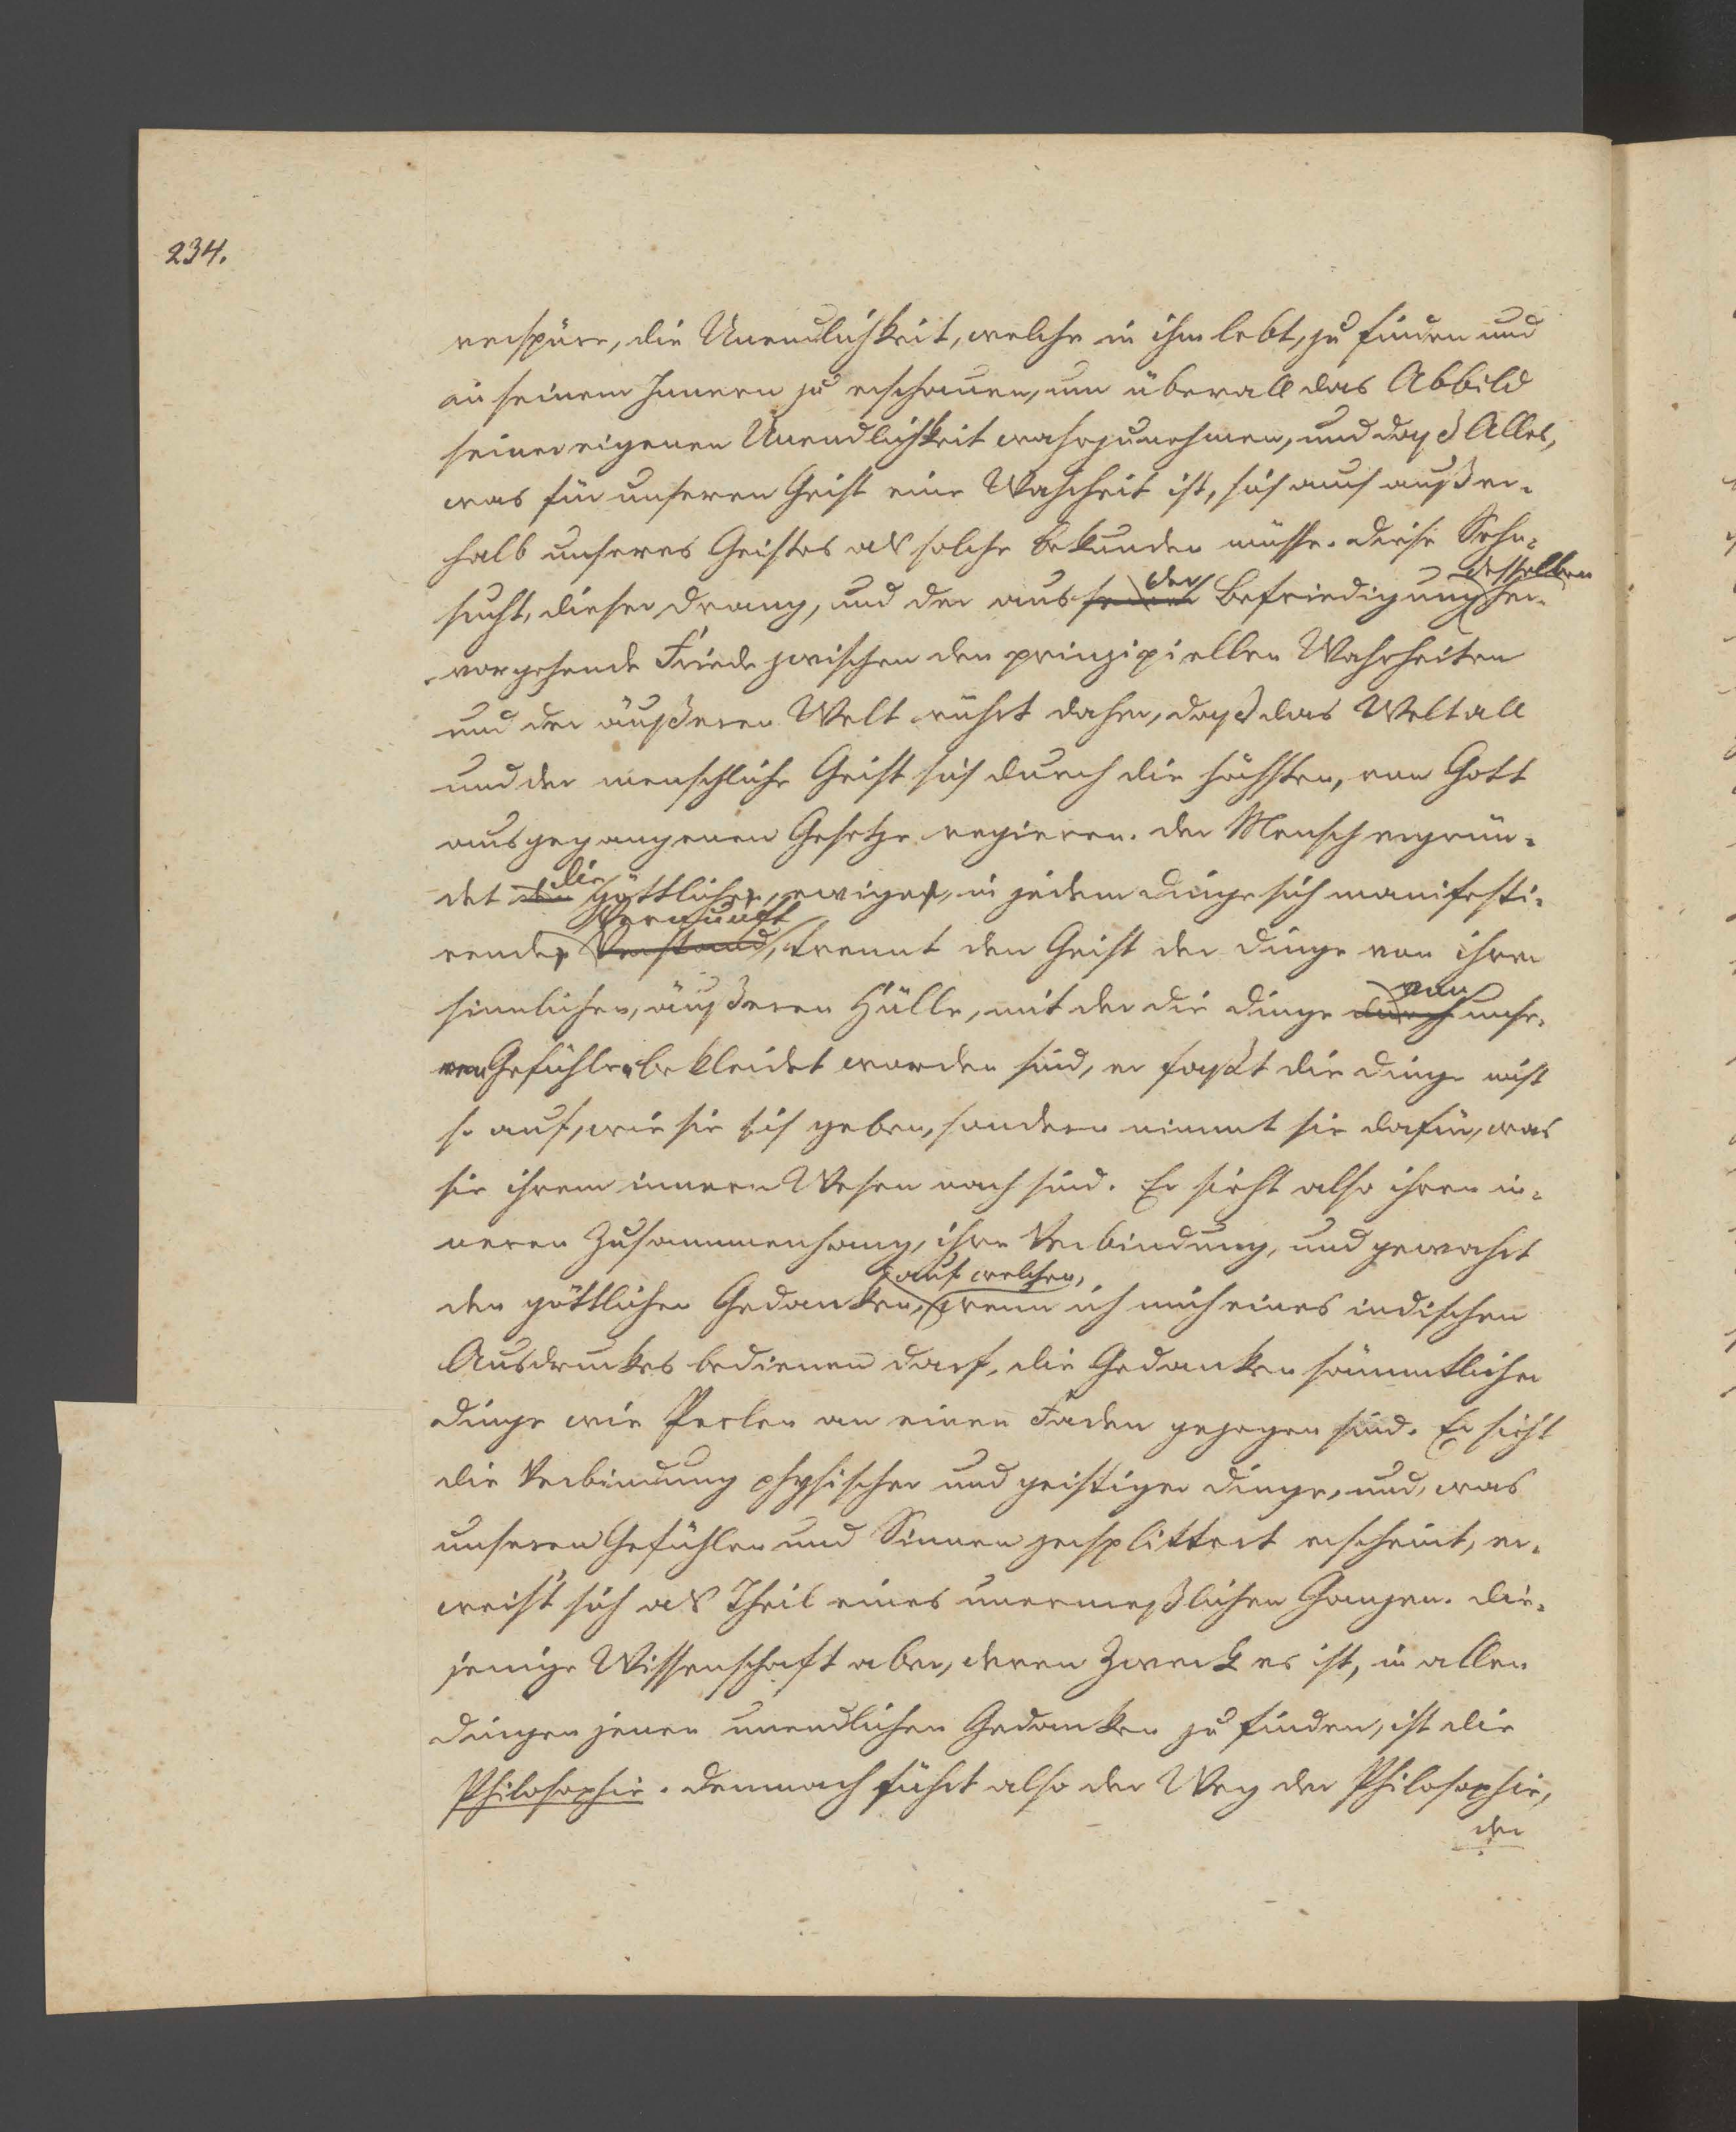 234.
verspüre, die Unendlichkeit, welche in ihm lebt, zu finden und
in seinem Innern zu erschauen, um überall das Abbild
seiner eigenen Unendlichkeit wahrzunehmen, und daß Alles,
was für unseren Geist eine Wahrheit ist, sich auch außer-
halb unseres Geistes als solche bekunden müsse. Diese Sehn-
der desselben
sucht, dieser Drang, und der aus seiner Befriedigung her-
vorgehende Friede zwischen den prinzipiellen Wahrheiten
und der äußeren Welt rührt daher, daß das Weltall
und der menschliche Geist sich durch die höchsten, von Gott
ausgegangenen Gesetze regieren. Der Mensch ergrün-
die
det den göttliche, ewige, in jedem Dinge sich manifesti-
Vernunft
rende Verstand, trennt den Geist der Dinge von ihrer
von
sinnlichen, äußeren Hülle, mit der die Dinge durch unse-
ren Gefühlen bekleidet worden sind, er faßt die Dinge nicht
so auf, wie sie sich geben, sondern nimmt sie dafür, was
sie ihrem inneren Wesen nach sind. Er sieht also ihren in-
neren Zusammenhang, ihre Verbindung, und gewahrt
auf welchen,
den göttlichen Gedanken, wenn ich mich eines indischen
Ausdruckes bedienen darf, die Gedanken sämmtlicher
Dinge wie Perlen an einen Faden gezogen sind. Er sieht
die Verbindung physischer und geistiger Dinge, und, was
unseren Gefühlen und Sinnen zersplittert erscheint, er-
weist sich als Theil eines unermeßlichen Ganzen. Die-
jenige Wissenschaft aber, deren Zweck es ist, in allen
Dingen jenen unendlichen Gedanken zu finden, ist die
Philosophie. Demnach führt also der Weg der Philosophie,
der